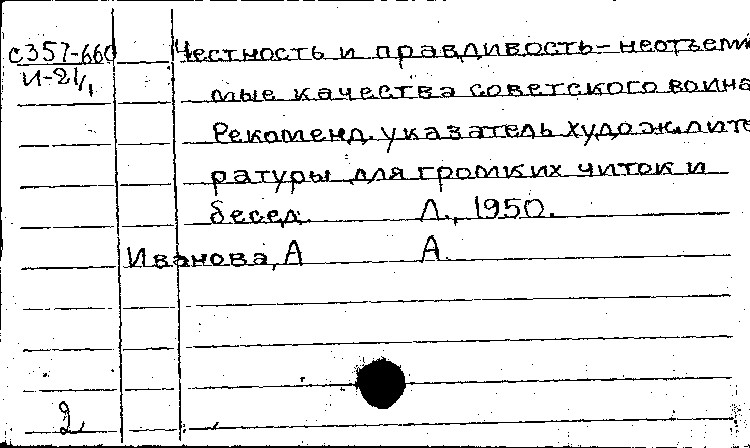 с357-660
И-21/1
Честность и правдивость-неотъем
мые качества советского воина
Рекоменд.указатель худож.лите
ратуры для громких читок и
бесед. Л., 1950.
Иванова, А А.
2